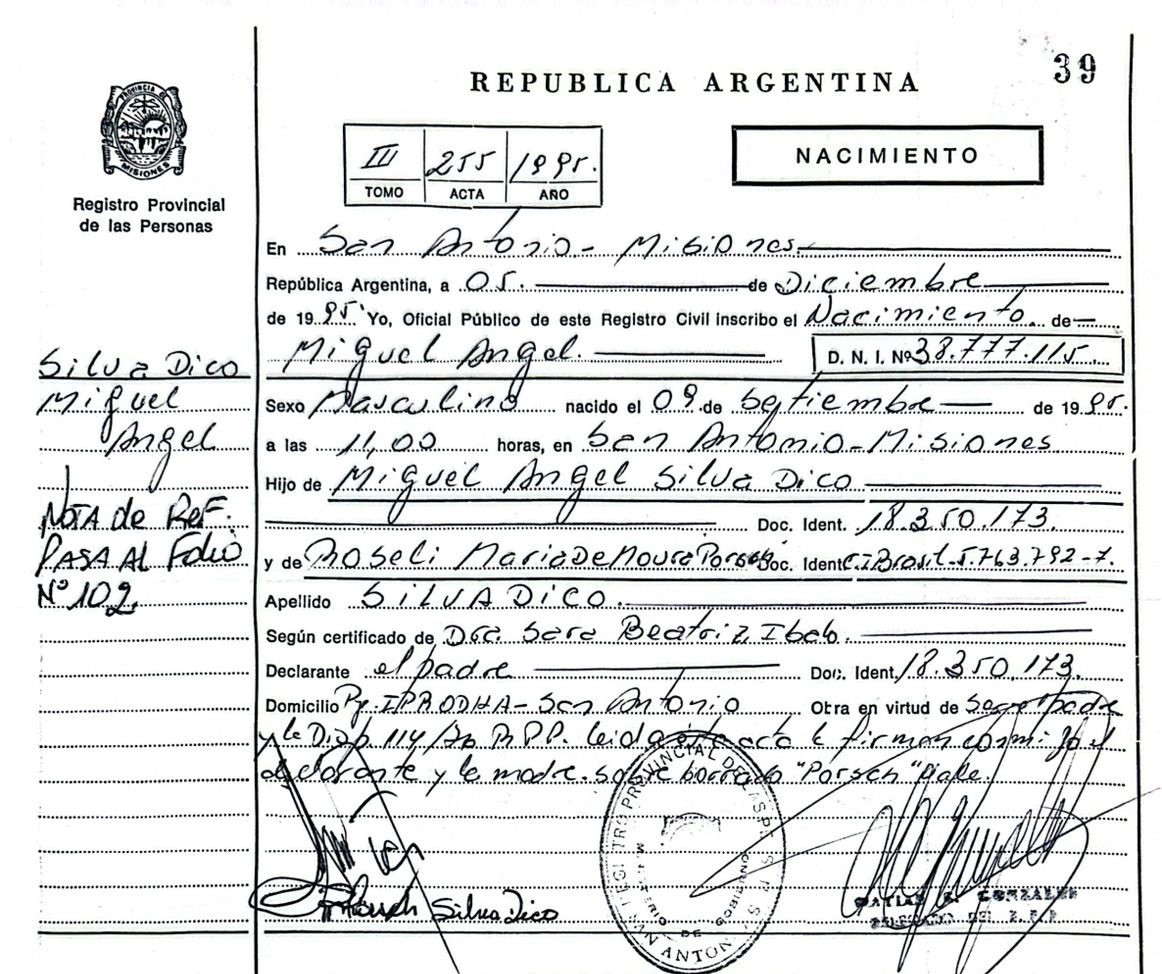 39
REPUBLICA ARGENTINA
PROVINCIA DE
MISIONES
Registro Provincial
de las Personas
III 255 1995.
TOMO ACTA AÑO
NACIMIENTO
En San Antonio - Misiones
República Argentina, a 05. de Diciembre
de 1995 Yo, Oficial Público de este Registro Civil inscribo el Nacimiento de
Miguel Angel. D. N. I. Nº 38.777.115
Silva Dico
Miguel
Angel
NOTA de REF.
PASA AL Folio
Nº 102
Sexo Masculino nacido el 09 de Septiembre de 1995.
a las 11,00 horas, en San Antonio - Misiones
Hijo de Miguel Angel Silva Dico
Doc. Ident. 18.350.173.
y de Roseli Maria De Moura Doc. Ident. C.I Brasil-5.763.792-7.
Apellido SILVA DICO.
Según certificado de Dra Sara Beatriz
Declarante el padre Doc. Ident. 18.350.173.
Domicilio IPRODHA - San Antonio Otra en virtud de
y la Disp. 114/ R.P.P. leida acta la firman conmigo el
declarante y la madre. sobre borrado "Porsch" Vale.
Silva Dico
REGISTRO PROVINCIAL DE LAS PERSONAS
MINISTERIO DE GOBIERNO
SAN ANTONIO
GONZALEZ
DELEGADO DEL R.P.P